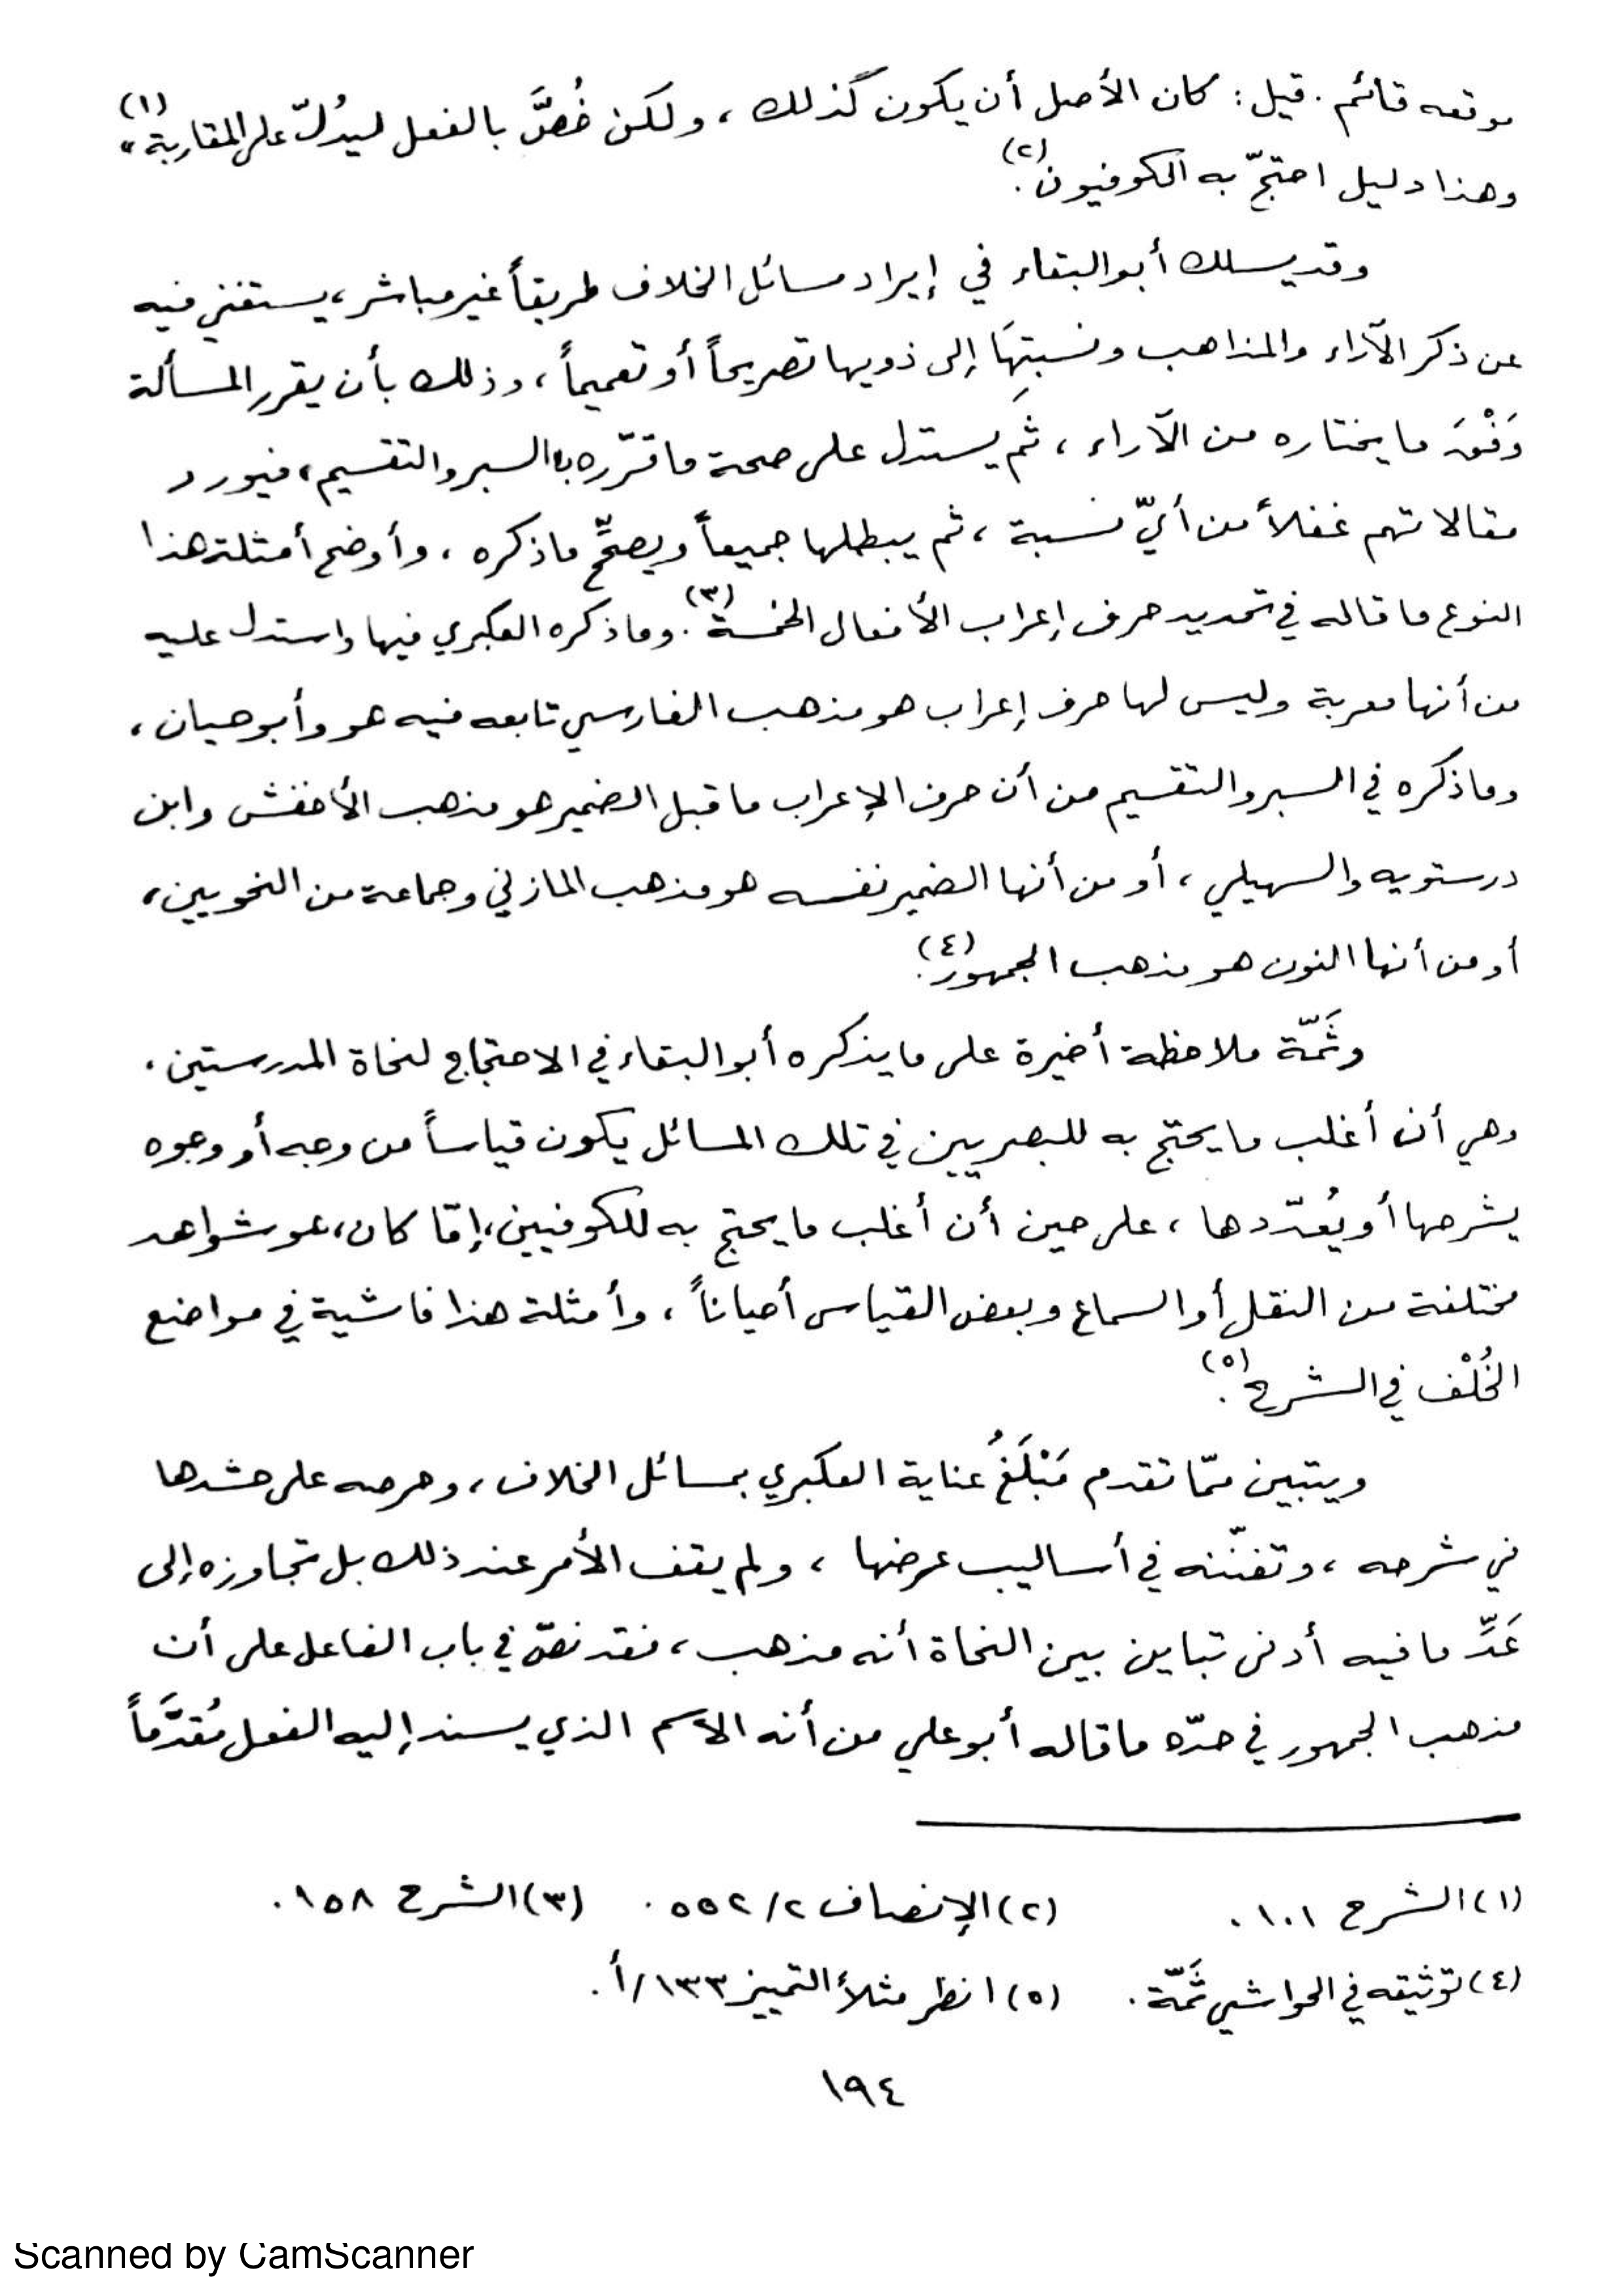 موقعه قائم. قيل: كان الأصل أن يكون كذلك، ولكن خُصَّ بالفعل ليدُلّ على المقاربة"(١)
وهذا دليل احتجّ به الكوفيون(٢).
وقد يسلك أبو البقاء في إيراد مسائل الخلاف طريقاً غير مباشر، يستغني فيه
عن ذكر الآراء والمذاهب ونسبتِهَا إلى ذويها تصريحاً أو تعميماً، وذلك بأن يقرر المسألة
وَفْقَ ما يختاره من الآراء، ثم يستدل على صحة ما قرّره بالسبر والتقسيم، فيورد
مقالاتهم غفلاً من أيّ نسبة، ثم يبطلها جميعاً ويصحِّح ما ذكره، وأوضح أمثلة هذا
النوع ما قاله في تحديد حرف إعراب الأفعال الخمسة(٣). وما ذكره العكبري فيها واستدل عليه
من أنها معربة وليس لها حرف إعراب هو مذهب الفارسي تابعه فيه هو وأبو حيان،
وما ذكره في السبر والتقسيم من أن حرف الإعراب ما قبل الضمير هو مذهب الأخفش وابن
درستويه والسهيلي، أو من أنها الضمير نفسه هو مذهب المازني وجماعة من النحويين،
أو من أنها النون هو مذهب الجمهور(٤).
وثَمّة ملاحظة أخيرة على ما يذكره أبو البقاء في الاحتجاج لنحاة المدرستين.
وهي أن أغلب ما يحتج به للبصريين في تلك المسائل يكون قياساً من وجه أو وجوه
يشرحها أو يُعدّدها، على حين أن أغلب ما يحتج به للكوفيين، إمّا كان، هو شواهد
مختلفة من النقل أو السماع وبعض القياس أحياناً، وأمثلة هذا فاشية في مواضع
الخُلْف في الشرح(٥).
ويتبين ممّا تقدم مَبْلَغُ عناية العكبري بمسائل الخلاف، وحرصه على حشدها
في شرحه، وتفنّنه في أساليب عرضها، ولم يقف الأمر عند ذلك بل تجاوزه إلى
عَدِّ ما فيه أدنى تباين بين النحاة أنه مذهب، فقد نصّ في باب الفاعل على أن
مذهب الجمهور في حدّه ما قاله أبو علي من أنه الاسم الذي يسند إليه الفعل مُقدَّماً
(١) الشرح ١٠١. (٢) الإنصاف ٢/ ٥٥٢. (٣) الشرح ١٥٨.
(٤) توثيقه في الحواشي ثَمّة. (٥) انظر مثلاً التمييز ١٣٣/أ.
١٩٤
Scanned by CamScanner